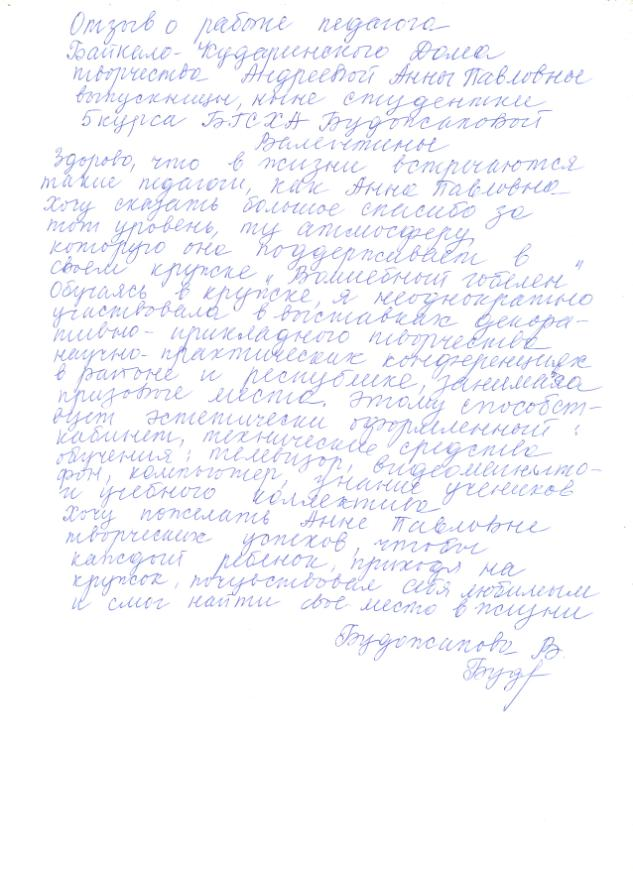 Отзыв о работе педагога
Байкало-Кударинского Дома
творчества Андреевой Анны Павловны
выпускницы, ныне студентки
5 курса БГСХА Будожаповой
Валентины
Здорово, что в жизни встречаются
такие педагоги, как Анна Павловна
Хочу сказать большое спасибо за
тот уровень, ту атмосферу,
которую она поддерживает в
своем кружке „Волшебный гобелен"
Обучаясь в кружке, я неоднократно
участвовала в выставках декора-
тивно-прикладного творчества
научно-практических конференциях
в районе и республике, занимала
призовые места. Этому способст-
вует эстетически оформленный
кабинет, технические средства
обучения: телевизор,
фон, компьютер, знание учеников
и учебного коллектива
Хочу пожелать Анне Павловне
творческих успехов, чтобы
каждый ребенок, приходя на
кружок, почувствовал себя любимым
и смог найти свое место в жизни
Будожапова В.
Буд